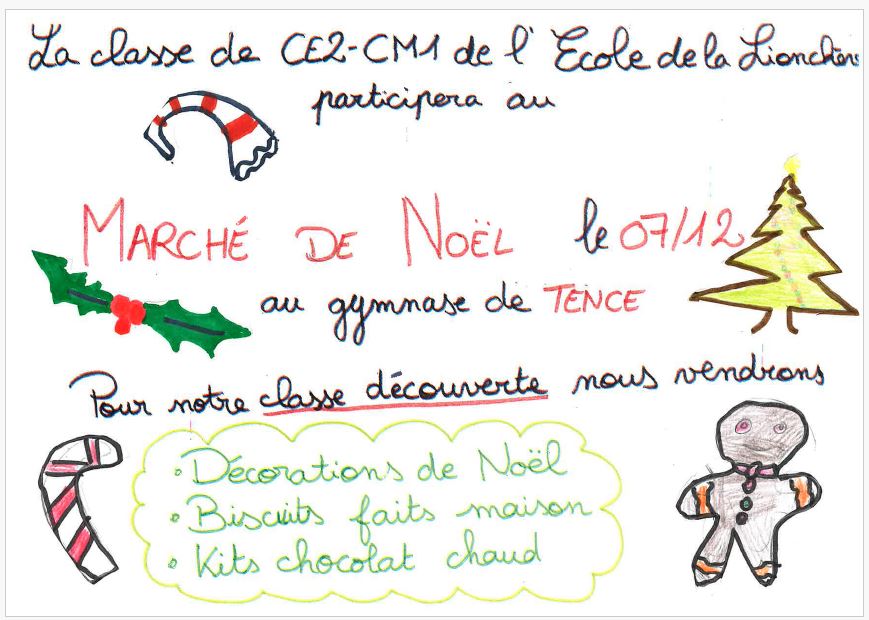 La classe de CE2-CM1 de l'Ecole de la Lionchère
participera au
MARCHÉ DE NOËL le 07/12
au gymnase de TENCE
Pour notre classe découverte nous vendrons
• Décorations de Noël
• Biscuits faits maison
• Kits chocolat chaud